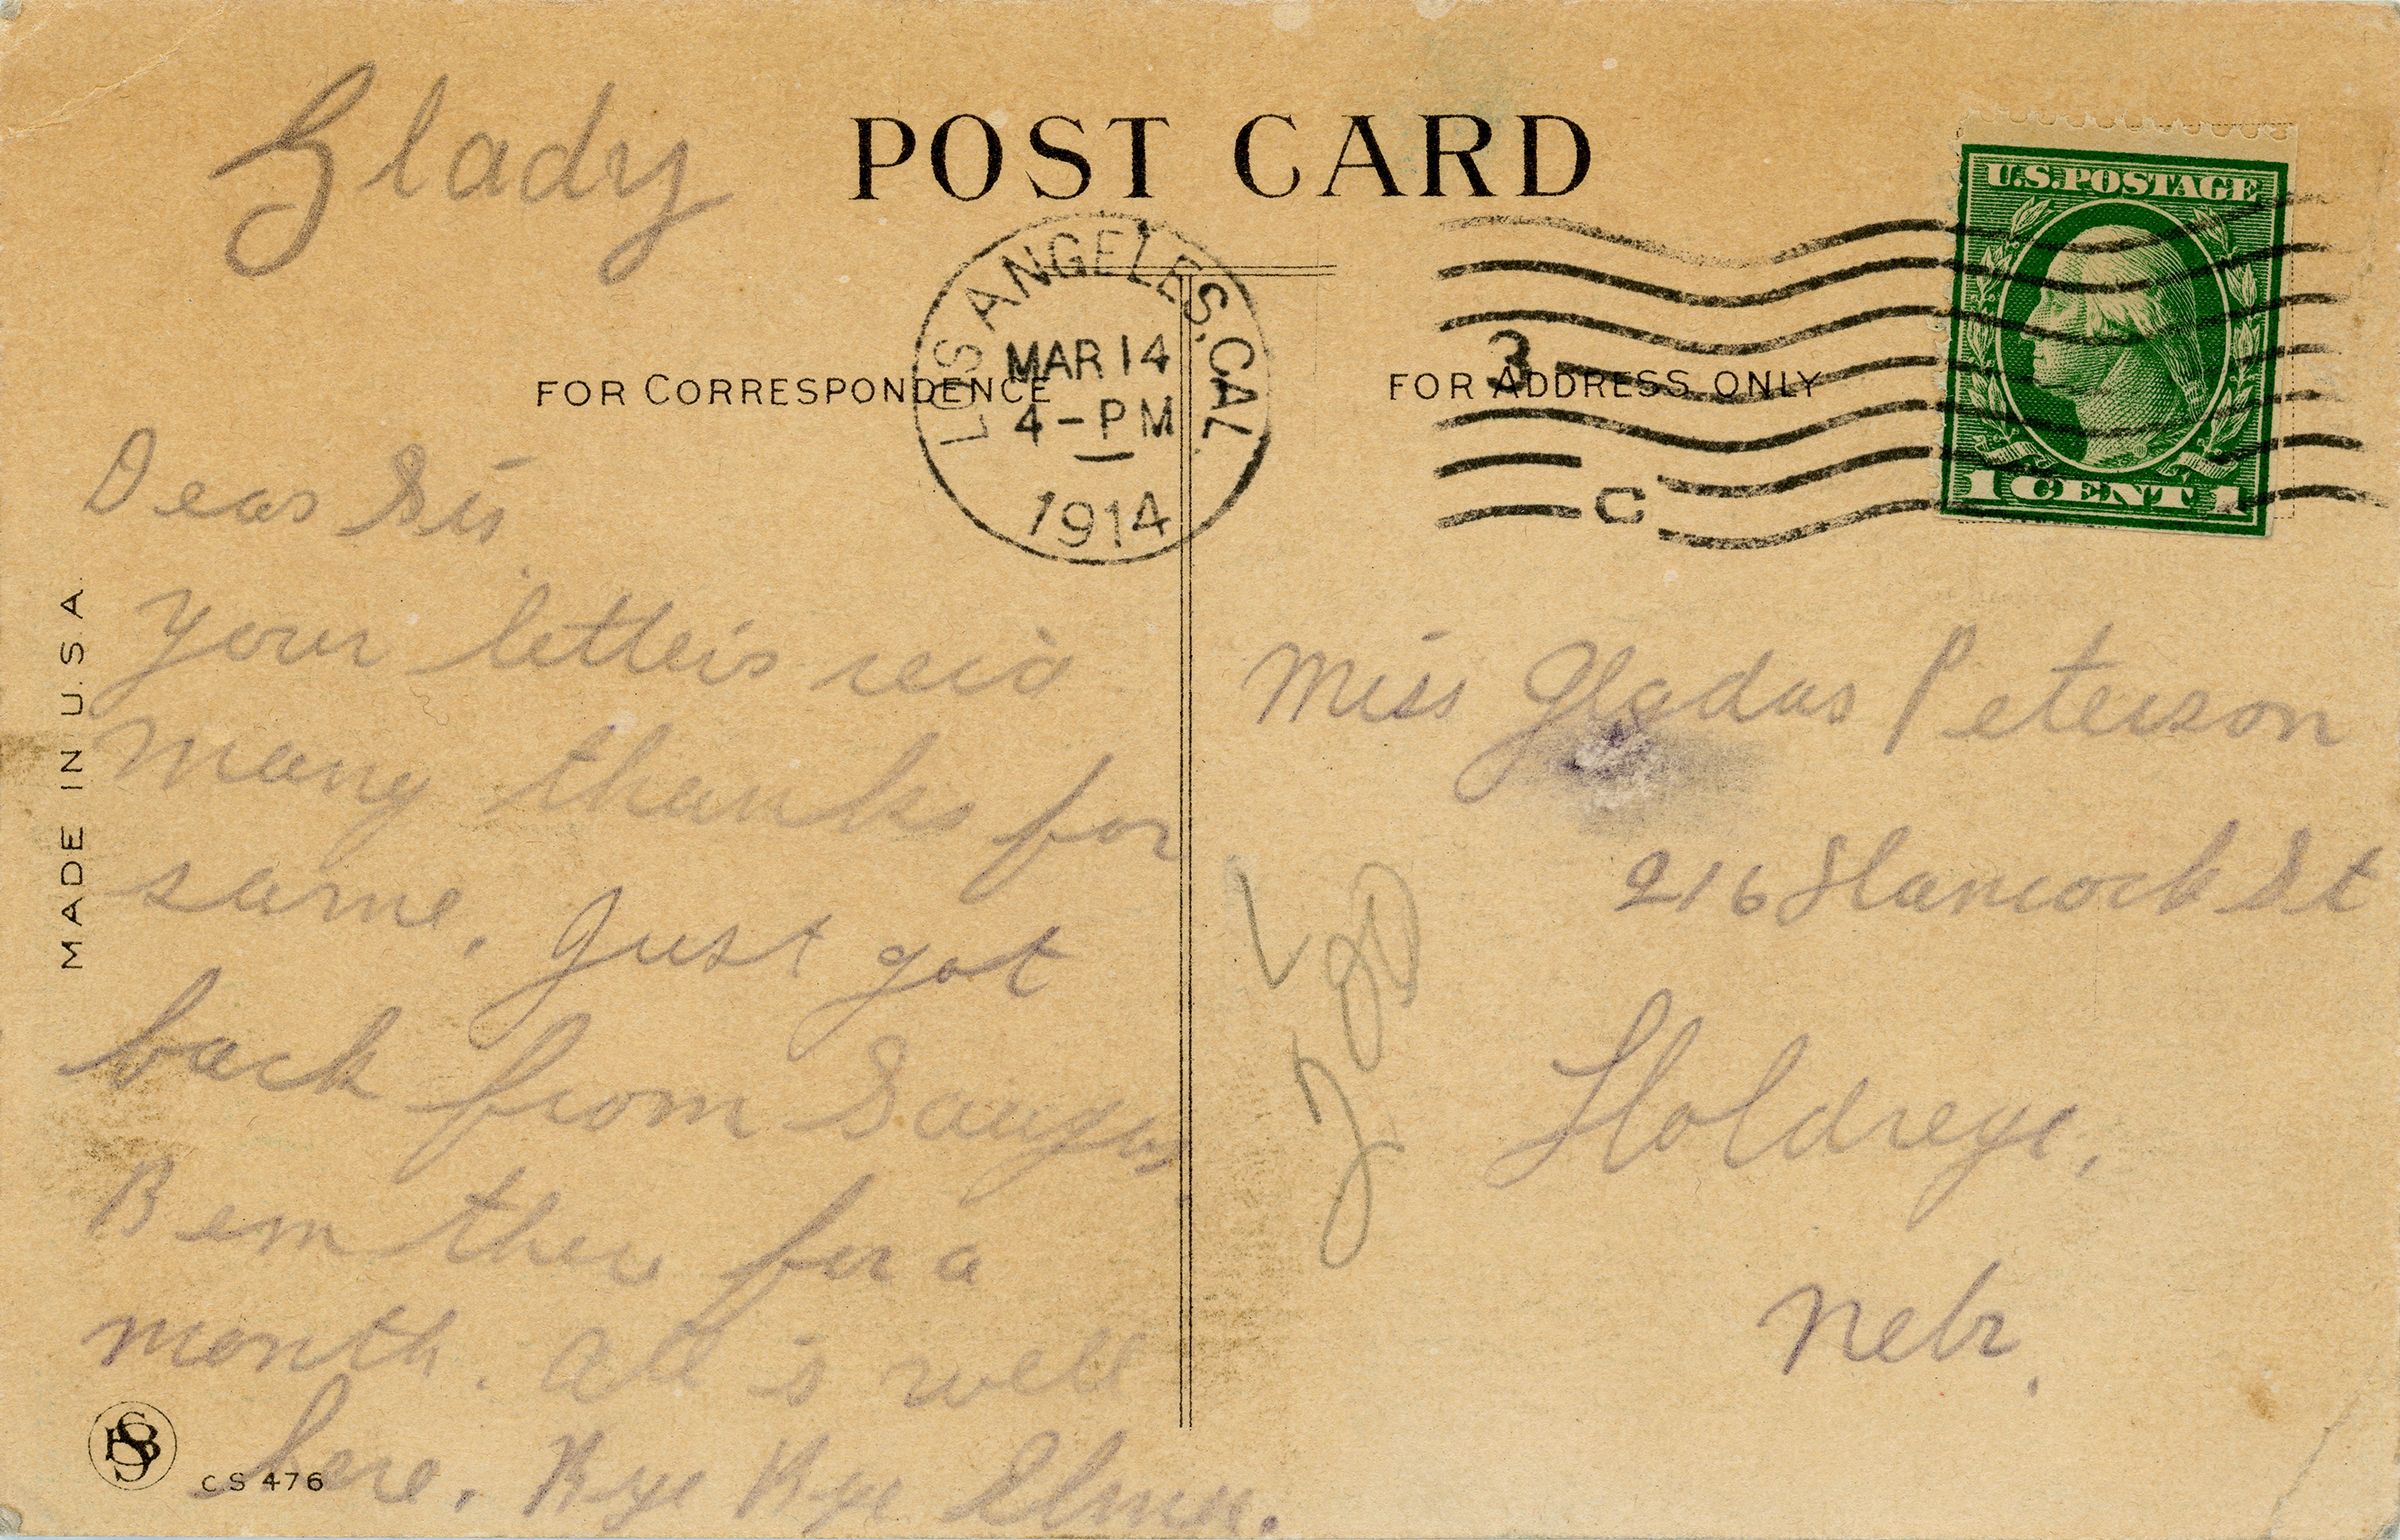 Glady
POST CARD
U.S. POSTAGE
1 CENT 1
LOS ANGELES, CAL.
MAR 14
4-PM
1914
3
C
FOR CORRESPONDENCE
FOR ADDRESS ONLY
Dear Sis
Your letters rec'd
Many thanks for
same. Just got
back from Saugus
Been there for a
month. All is well
here. Bye Bye Elmer.
Miss Gladys Peterson
216 Hancock St
Holdrege,
Nebr.
MADE IN U.S.A.
CS 476